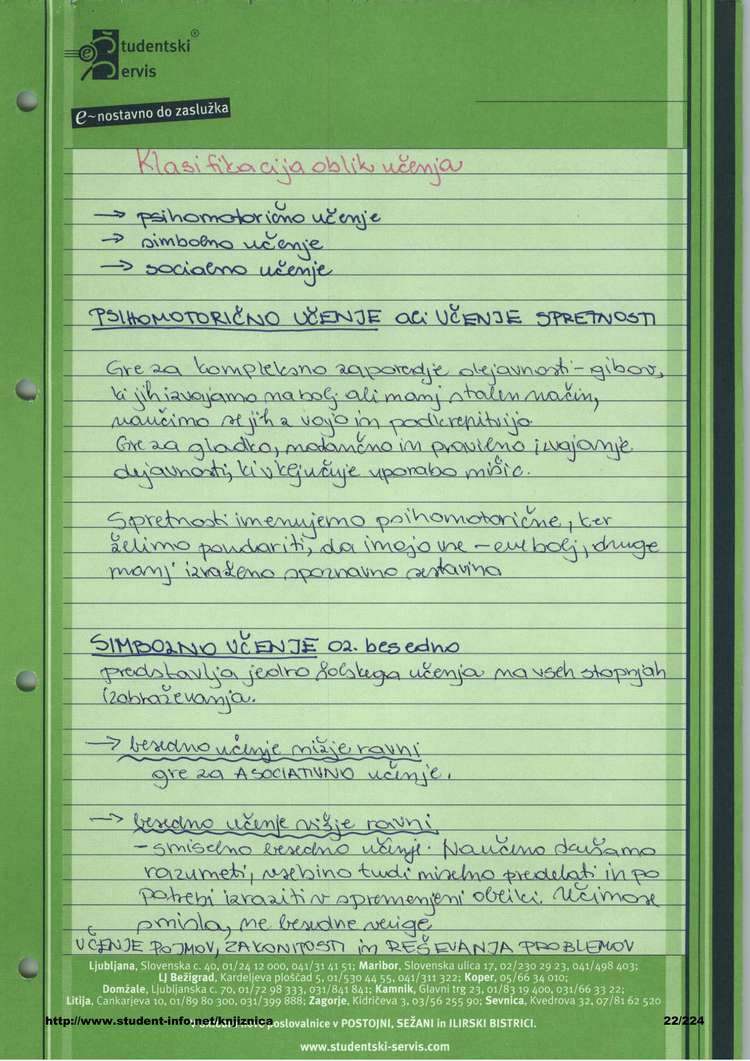 Študentski®
Servis
e~nostavno do zaslužka
Klasifikacija oblik učenja
→ psihomotorično učenje
→ simbolno učenje
→ socialno učenje
PSIHOMOTORIČNO UČENJE ali UČENJE SPRETNOSTI
Gre za kompleksno zaporedje dejavnosti - gibov,
ki jih izvajamo na bolj ali manj stalen način,
naučimo se jih z vajo in podkrepitvijo.
Gre za gladko, natančno in pravilno izvajanje
dejavnosti, ki vključuje uporabo mišic.
Spretnosti imenujemo psihomotorične, ker
želimo poudariti, da imajo vse - ene bolj, druge
manj izraženo spoznavno sestavino
SIMBOLNO UČENJE oz. besedno
predstavlja jedro šolskega učenja na vseh stopnjah
izobraževanja.
→ besedno učenje nižje ravni
gre za ASOCIATIVNO učenje.
→ besedno učenje višje ravni
- smiselno besedno učenje. Naučeno skušamo
razumeti, vsebino tudi miselno predelati in po
potrebi izraziti v spremenjeni obliki. Učimo se
smisla, ne besedne verige
UČENJE POJMOV, ZAKONITOSTI in REŠEVANJA PROBLEMOV
Ljubljana, Slovenska c. 40, 01/24 12 000, 041/31 41 51; Maribor, Slovenska ulica 17, 02/230 29 23, 041/498 403;
LJ Bežigrad, Kardeljeva ploščad 5, 01/530 44 55, 041/311 322; Koper, 05/66 34 010;
Domžale, Ljubljanska c. 70, 01/72 98 333, 031/841 841; Kamnik, Glavni trg 23, 01/83 19 400, 031/66 33 22;
Litija, Cankarjeva 10, 01/89 80 300, 031/399 888; Zagorje, Kidričeva 3, 03/56 255 90; Sevnica, Kvedrova 32, 07/81 62 520
http://www.student-info.net/knjiznica poslovalnice v POSTOJNI, SEŽANI in ILIRSKI BISTRICI. 22/224
www.studentski-servis.com